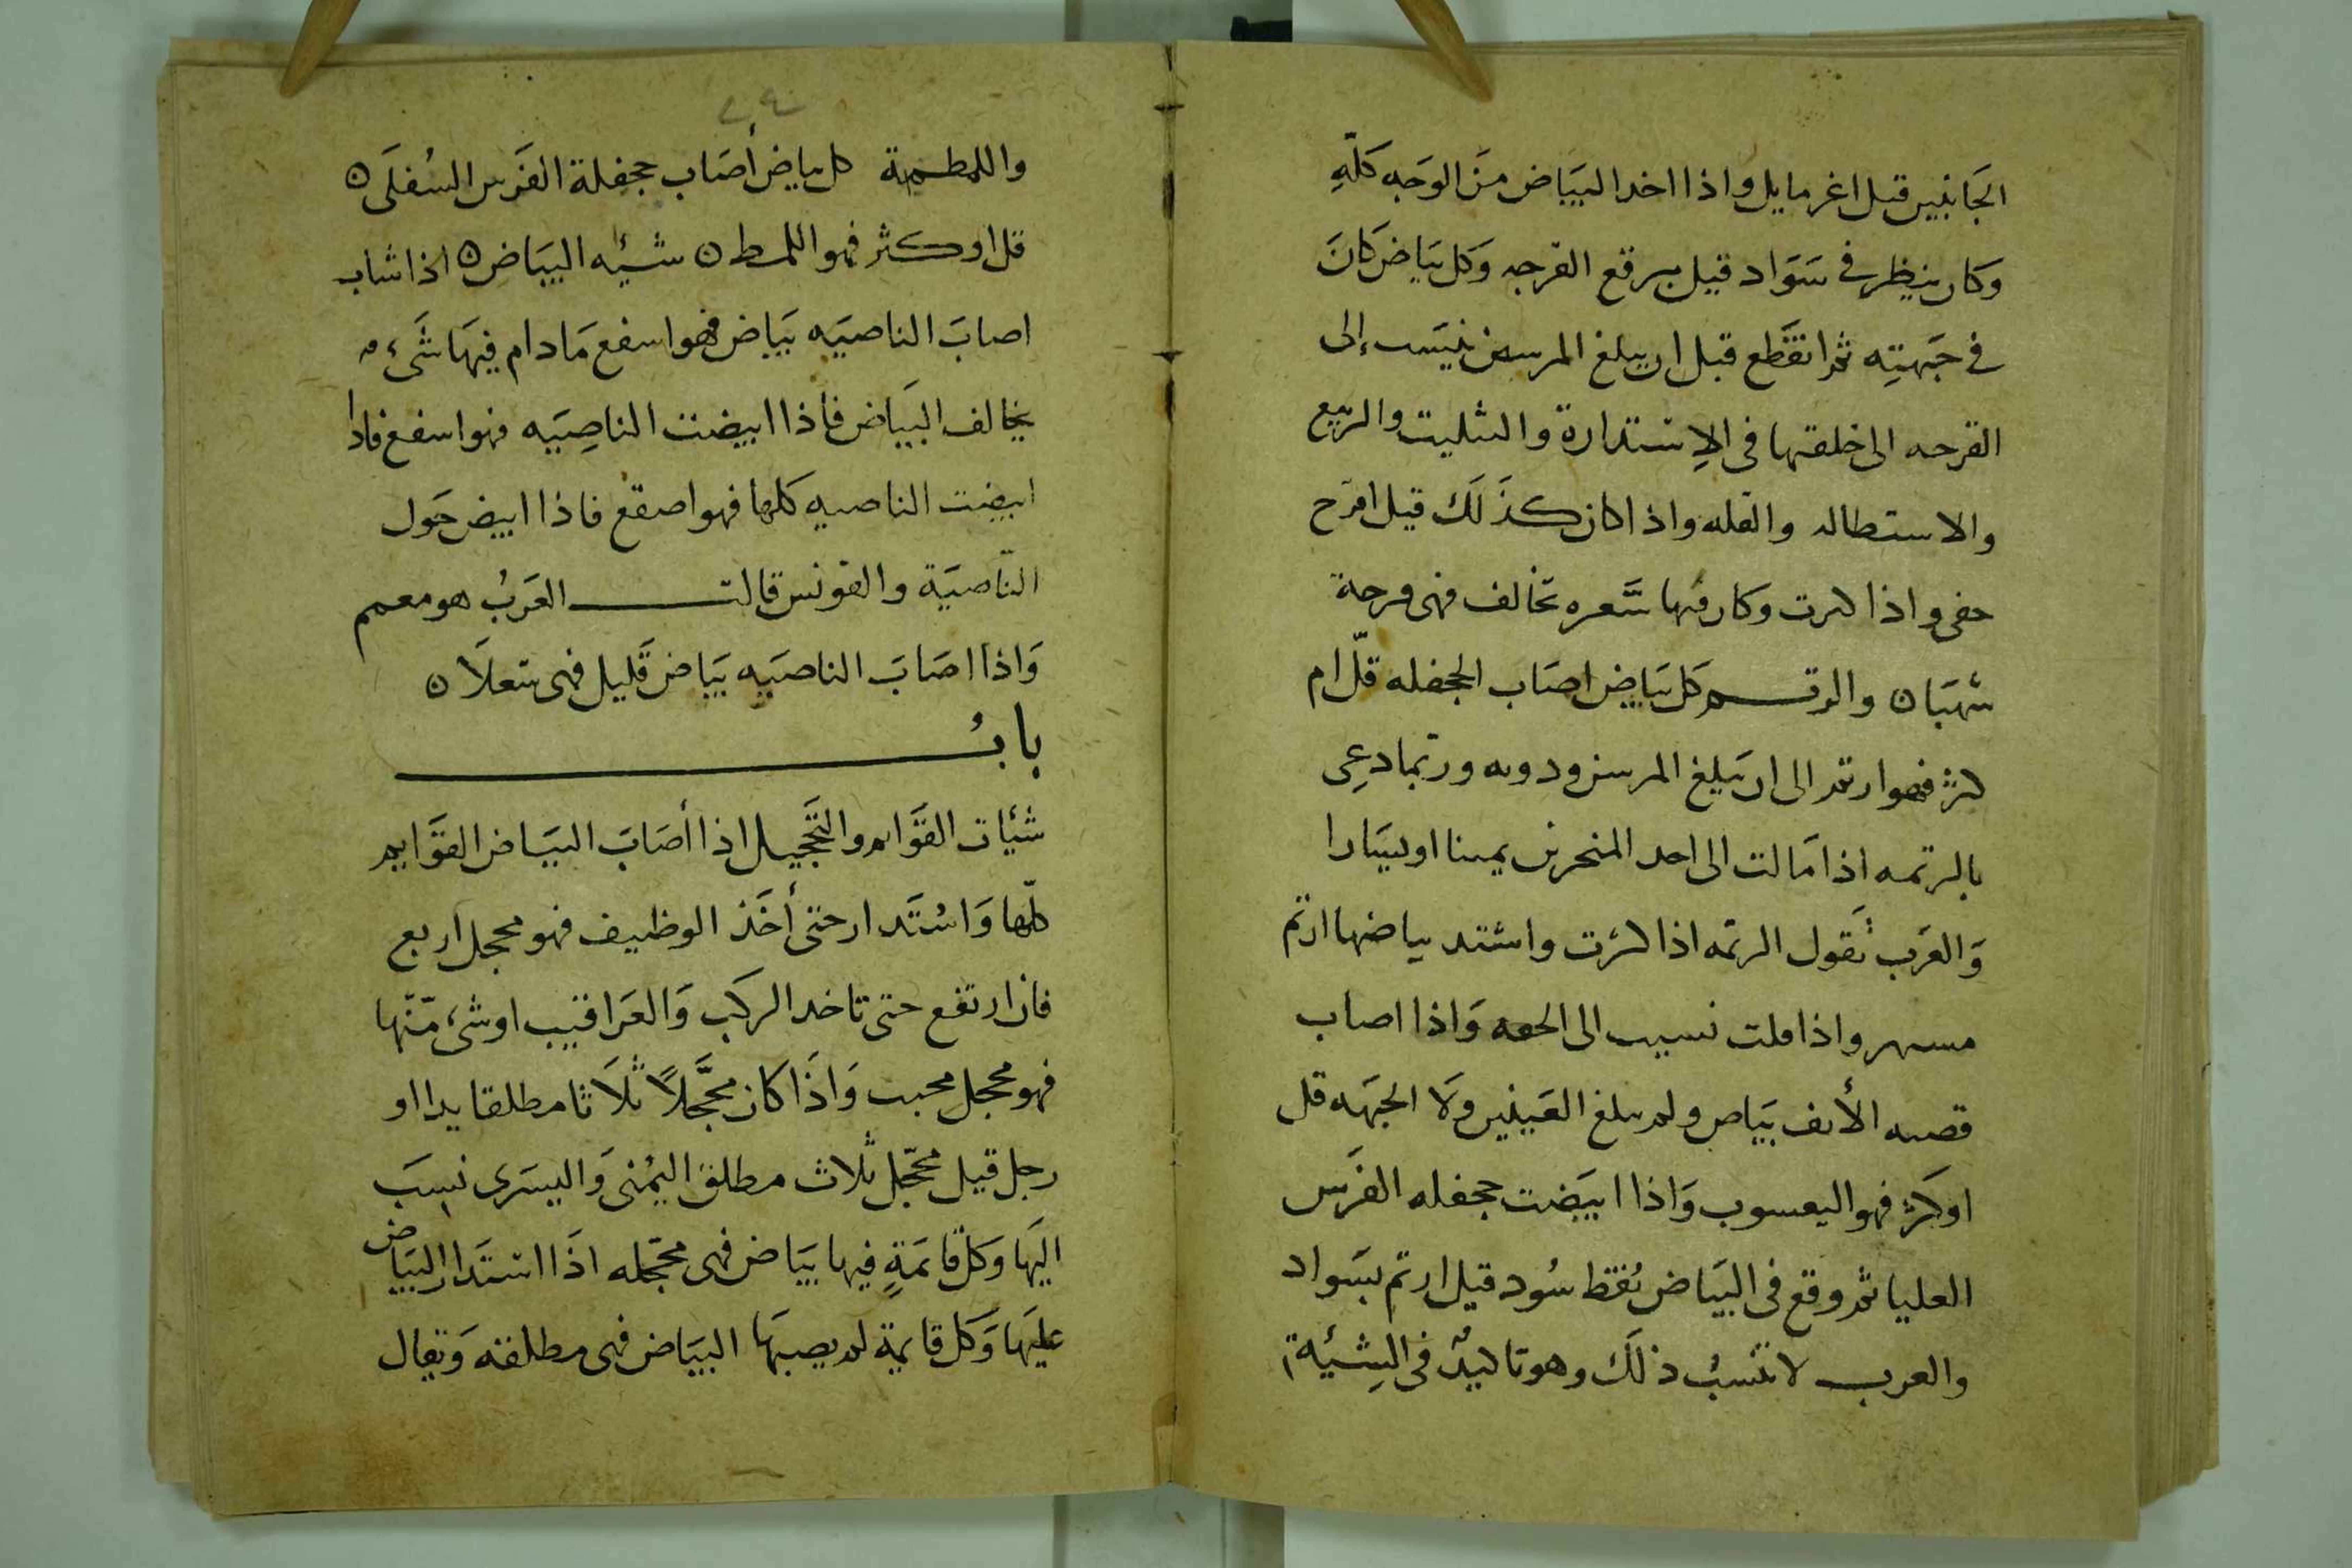 الجَانبين قيل اغر مايل واذا اخد البيَاض منَ الوَجه كلّهِ
وكان ينظر في سَوَاد قيل مبرقع القرحه وَكل بيَاض كانَ
في جَبهتِه ثم انقَطع قبل ان يبلغ المرسن نيسَب إلى
القرحه الى خلقتها فى الإستدارة والتثليت والربيع
والاستطاله والقله واذا كان كذَلك قيل اقرَح
حفى واذا كبرت وكان فيها شَعره تخالف فهى قرحة
شهبَا ن والرقم كل بيَاض اصَاب الجحفله قلّ ام
كثر فهو ارثم الى ان يَبلغ المرسن ودونه وربما دعِى
بالرثمه اذا مَالت الى احد المنخرين يمينا او يسَارا
وَالعَرب تَقول الرثمه اذا كثرت واشتد بياضها ارثم
واذا قلت نسب الى وَاذا اصاب
قصبه الأنف بيَاض ولم يبلغ العَينين وَلا الجبهَه قل
او كثر فهو اليعسوب وَاذا ابيَضت جحفله الفرَس
العليا ثم وقع فى البيَاض نُقط سُود قيل ارثم بسَواد
والعرب لا تنسبُ ذلَك وهو تاكيدٌ فى الشِيَئة
٢٩
واللمظمة كل بياض أصَاب جحفلة الفَرس السُفلَى ن
قل او كثر فهو اللمظ ن شيئه البيَاض ن اذا شاب
اصابَ الناصيَه بيَاض فهو اسفع مَا دام فيهَا شَىء
يخالف البيَاض فأذا ابيضت الناصِيَه فهو اسفع فاذا
ابيضت الناصيه كلها فهو اصقع فاذا ابيض حَول
النّاصيَة والقونس قالت العَربُ هو معمم
وَاذا اصَابَ الناصيَه بيَاض قَليل فهى سَعلَا ن
بابُ
شئيات القوَايم والتَّحجيل اذا أصَابَ البيَاض القوَايم
كلّها وَاستَدار حتى أخَذ الوظيف فهو محجل اربع
فان ارتفع حتى تاخد الركَب وَالعَراقيب او شىء منّها
فهو محجل محبب وَاذَا كان محجَّلاً ثلَاثا مطلقا يدا او
رجل قيل محجّل ثلاث مطلق اليُمنى وَاليسرَى نسِبَ
اليهَا وَكل قائمَةٍ فيها بيَاض فهى محجّله اذَا استَدار البيَاض
عليهَا وَكل قايمة لم يصبهَا البيَاض فهى مطلقه وَيقال